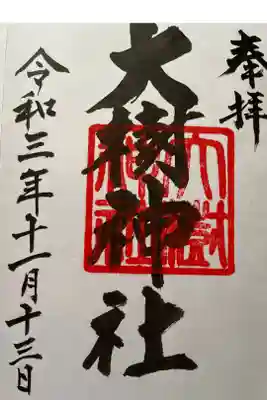 奉拝
大樹神社
令和三年十一月十三日